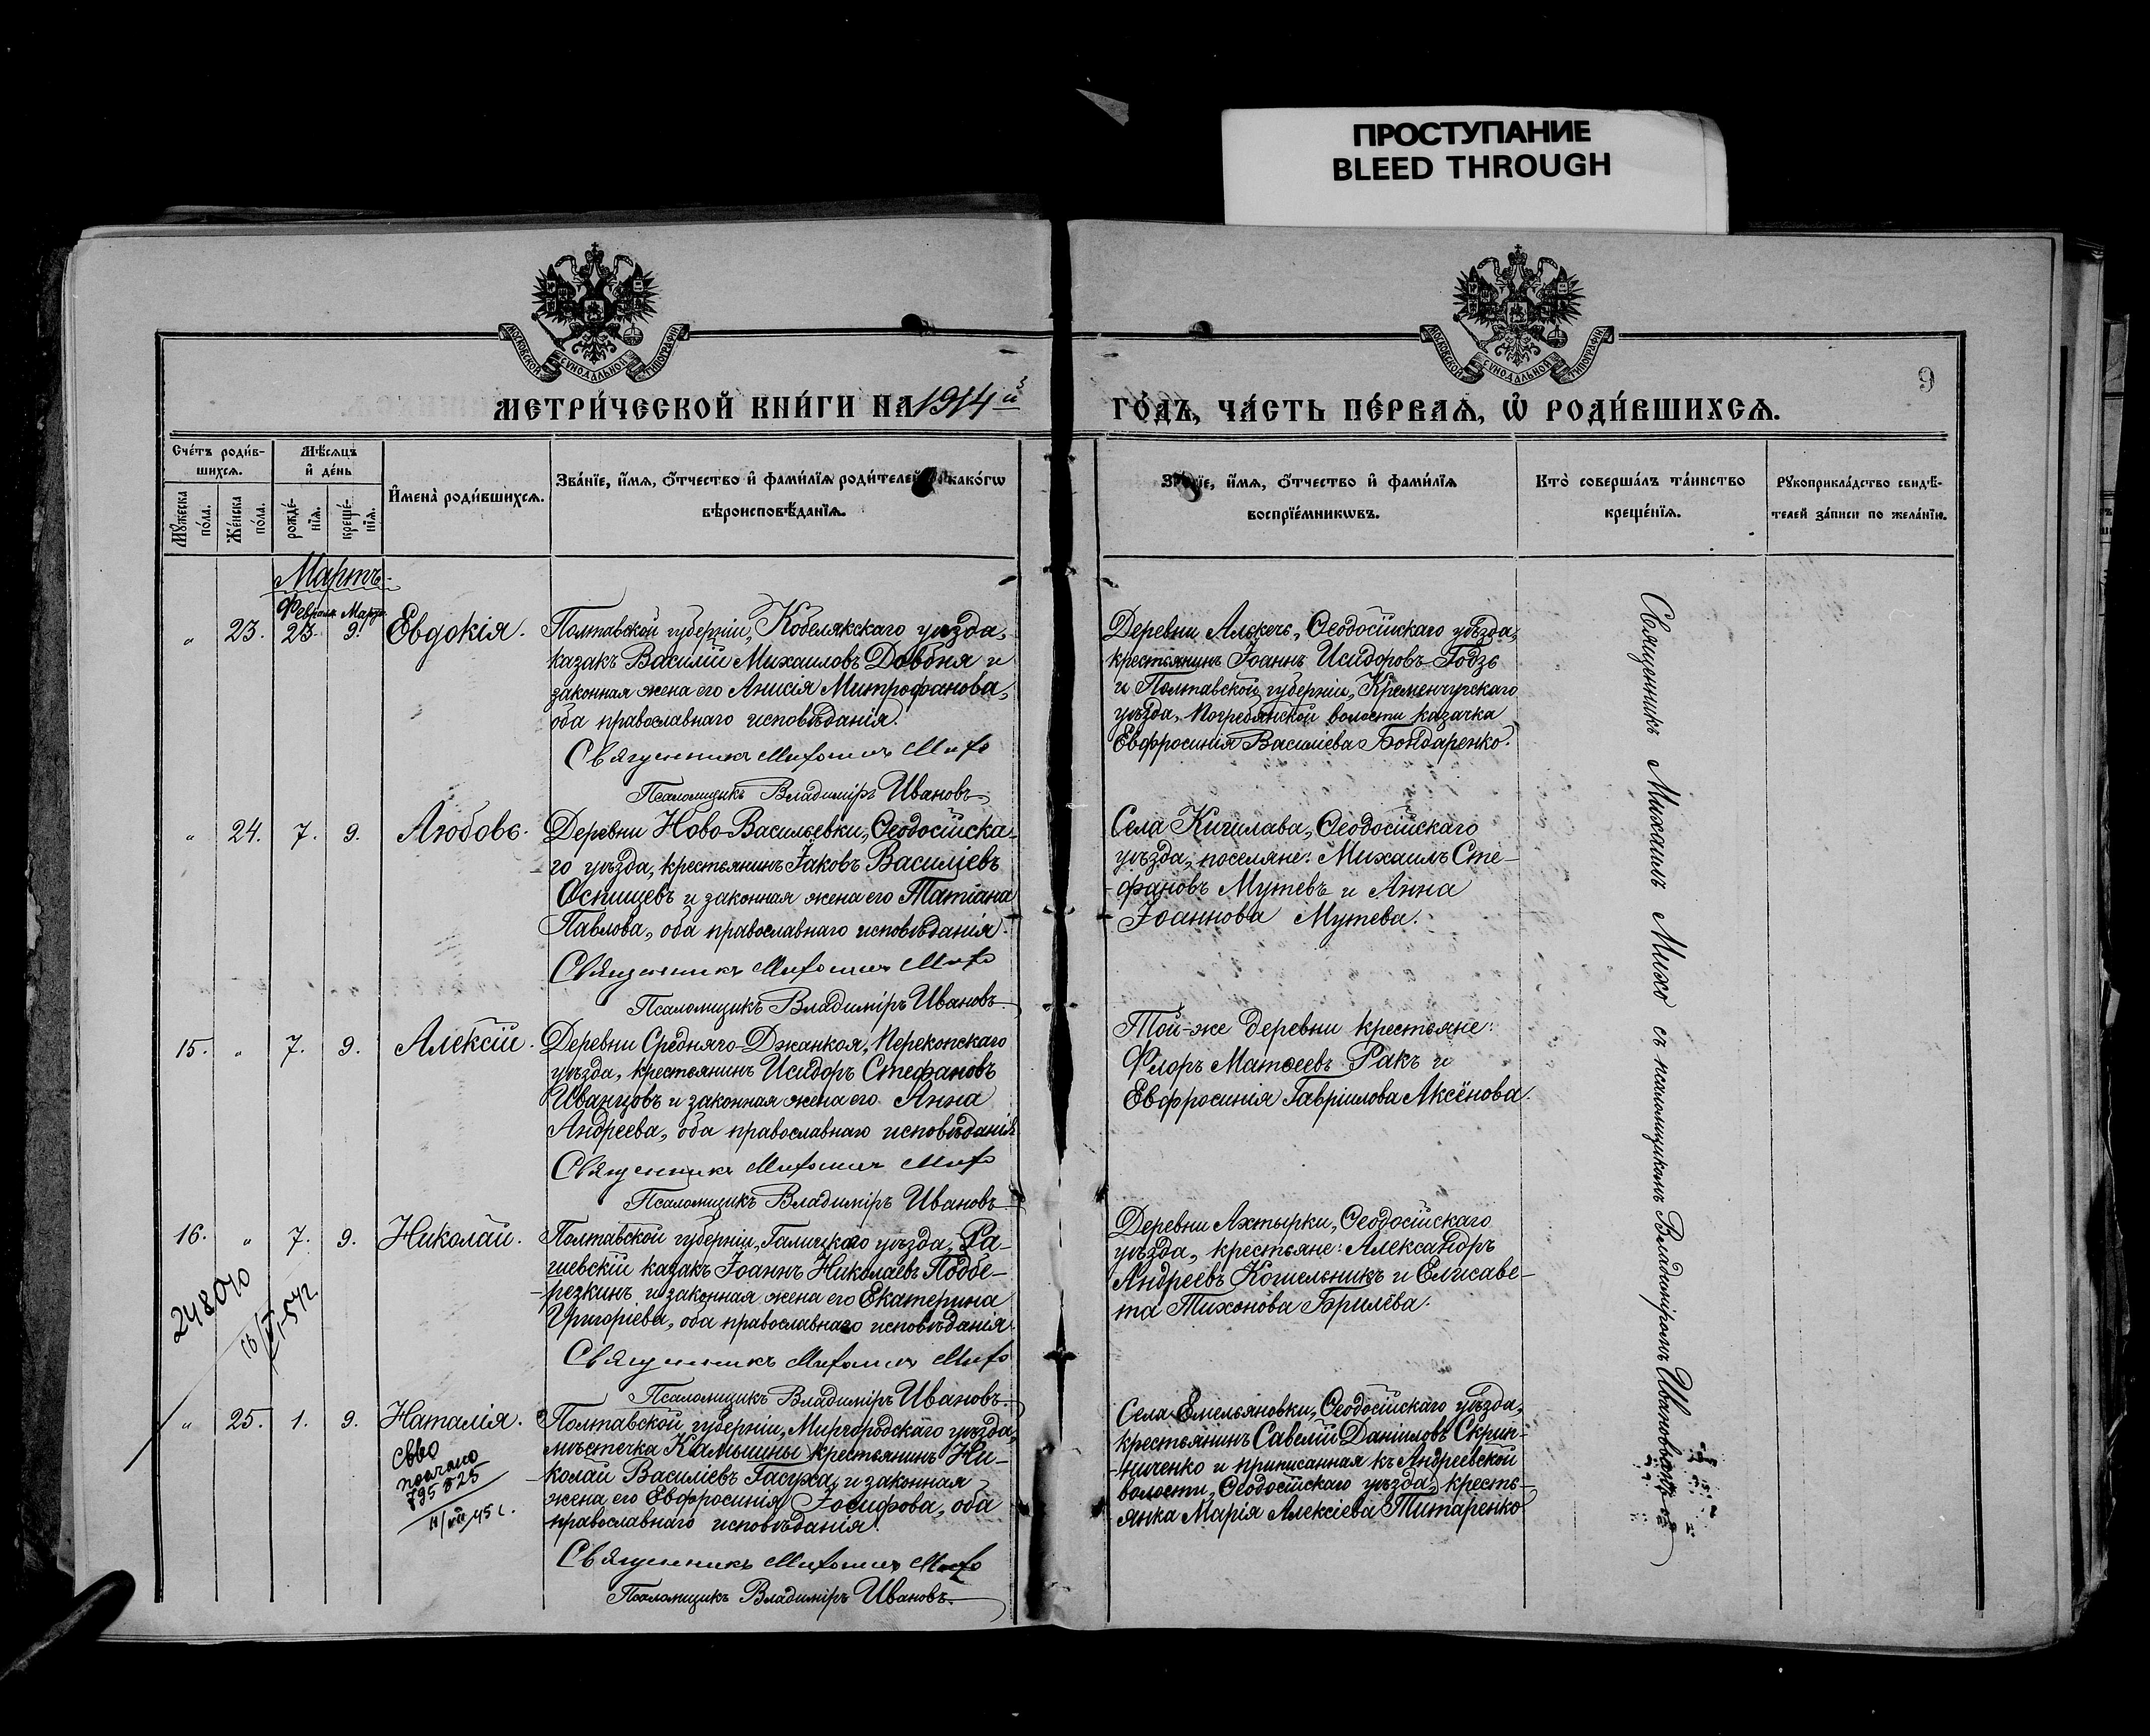 ПРОСТУПАНИЕ
BLEED THROUGH
МОСКОВСКОЙ СѴНОДАЛЬНОЙ ТИПОГРАФІИ
МОСКОВСКОЙ СѴНОДАЛЬНОЙ ТИПОГРАФІИ
9
МЕТРИ́ЧЕСКОЙ КНИ́ГИ НА 1914 й
ГО́ДЪ, ЧА́СТЬ ПЕ́РВАѦ, Ѡ҆ РОДИ́ВШИХСѦ.
Сче́тъ роди́в-
шихсѧ.
Мѣ́сѧцъ
и҆ де́нь
Мꙋ́жеска
по́ла.
Же́нска
по́ла.
рожде́-
нїѧ.
креще́-
нїѧ.
И҆мена̀ роди́вшихсѧ.
Зва́нїе, и҆́мѧ, ѻ҆́тчество и҆ фами́лїѧ роди́телей како́гѡ
вѣроисповѣ́данїѧ.
Зва́нїе, и҆́мѧ, ѻ҆́тчество и҆ фами́лїѧ
воспрїе́мникѡвъ.
Кто̀ соверша́лъ та́инство
креще́нїѧ.
Рꙋкоприкла́дство свидѣ́-
телей за́писи по жела́нїю.
Мартъ.
Февраля Марта
" 23. 23. 9. Евдокія.
Полтавской губерніи, Кобелякскаго уѣзда,
казакъ Василій Михаиловъ Довбня и
законная жена его Анисія Митрофанова,
оба православнаго исповѣданія.
Священникъ Михаилъ Михо
Псаломщикъ Владиміръ Ивановъ
Деревни Алькечь, Ѳеодосійскаго уѣзда,
крестьянинъ Іоаннъ Исидоровъ Годзь
и Полтавской губерніи, Кременчугскаго
уѣзда, Погребянской волости казачка
Евфросинія Василіева Бондаренко.
" 24. 7. 9. Любовь.
Деревни Ново-Васильевки, Ѳеодосійска-
го уѣзда, крестьянинъ Іаковъ Василіевъ
Оспищевъ и законная жена его Татіана
Павлова, оба православнаго исповѣданія.
Священникъ Михаилъ Михо
Псаломщикъ Владиміръ Ивановъ
Села Кишлава, Ѳеодосійскаго
уѣзда, поселяне: Михаилъ Сте-
фановъ Мутевъ и Анна
Іоаннова Мутева.
15. " 7. 9. Алексій.
Деревни Средняго-Джанкоя, Перекопскаго
уѣзда, крестьянинъ Исидоръ Стефановъ
Иванцовъ и законная жена его Анна
Андреева, оба православнаго исповѣданія
Священникъ Михаилъ Михо
Псаломщикъ Владиміръ Ивановъ
Той-же деревни крестьяне:
Флоръ Матѳеевъ Ракъ и
Евфросинія Гавріилова Аксёнова.
16. " 7. 9. Николай.
Полтавской губерніи, Гадячскаго уѣзда, Ра-
шевскій казакъ Іоаннъ Николаевъ Подбе-
резкинъ и законная жена его Екатерина
Григоріева, оба православнаго исповѣданія
Священникъ Михаилъ Михо
Псаломщикъ Владиміръ Ивановъ
Деревни Ахтырки, Ѳеодосійскаго
уѣзда, крестьяне: Александръ
Андреевъ Кошельникъ и Елисаве-
та Тихонова Брилёва.
" 25. 1. 9. Наталія.
свво
послано
795525
11/VII 45 г.
Полтавской губерніи, Миргородскаго уѣзда,
мѣстечка Камышны крестьянинъ Ни-
колай Василіевъ Гасуха, и законная
жена его Евфросинія Іосифова, оба
православнаго исповѣданія.
Священникъ Михаилъ Михо
Псаломщикъ Владиміръ Ивановъ
Села Емельяновки, Ѳеодосійскаго уѣзда,
крестьянинъ Савелій Даніиловъ Скрип-
ниченко и приписанная къ Андреевской
волости, Ѳеодосійскаго уѣзда, кресть-
янка Марія Алексіева Титаренко
Священникъ Михаилъ Михо съ псаломщикомъ Владиміромъ Ивановымъ